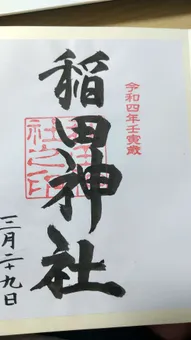 令和四年壬寅歳
稲田神社
三月二十九日